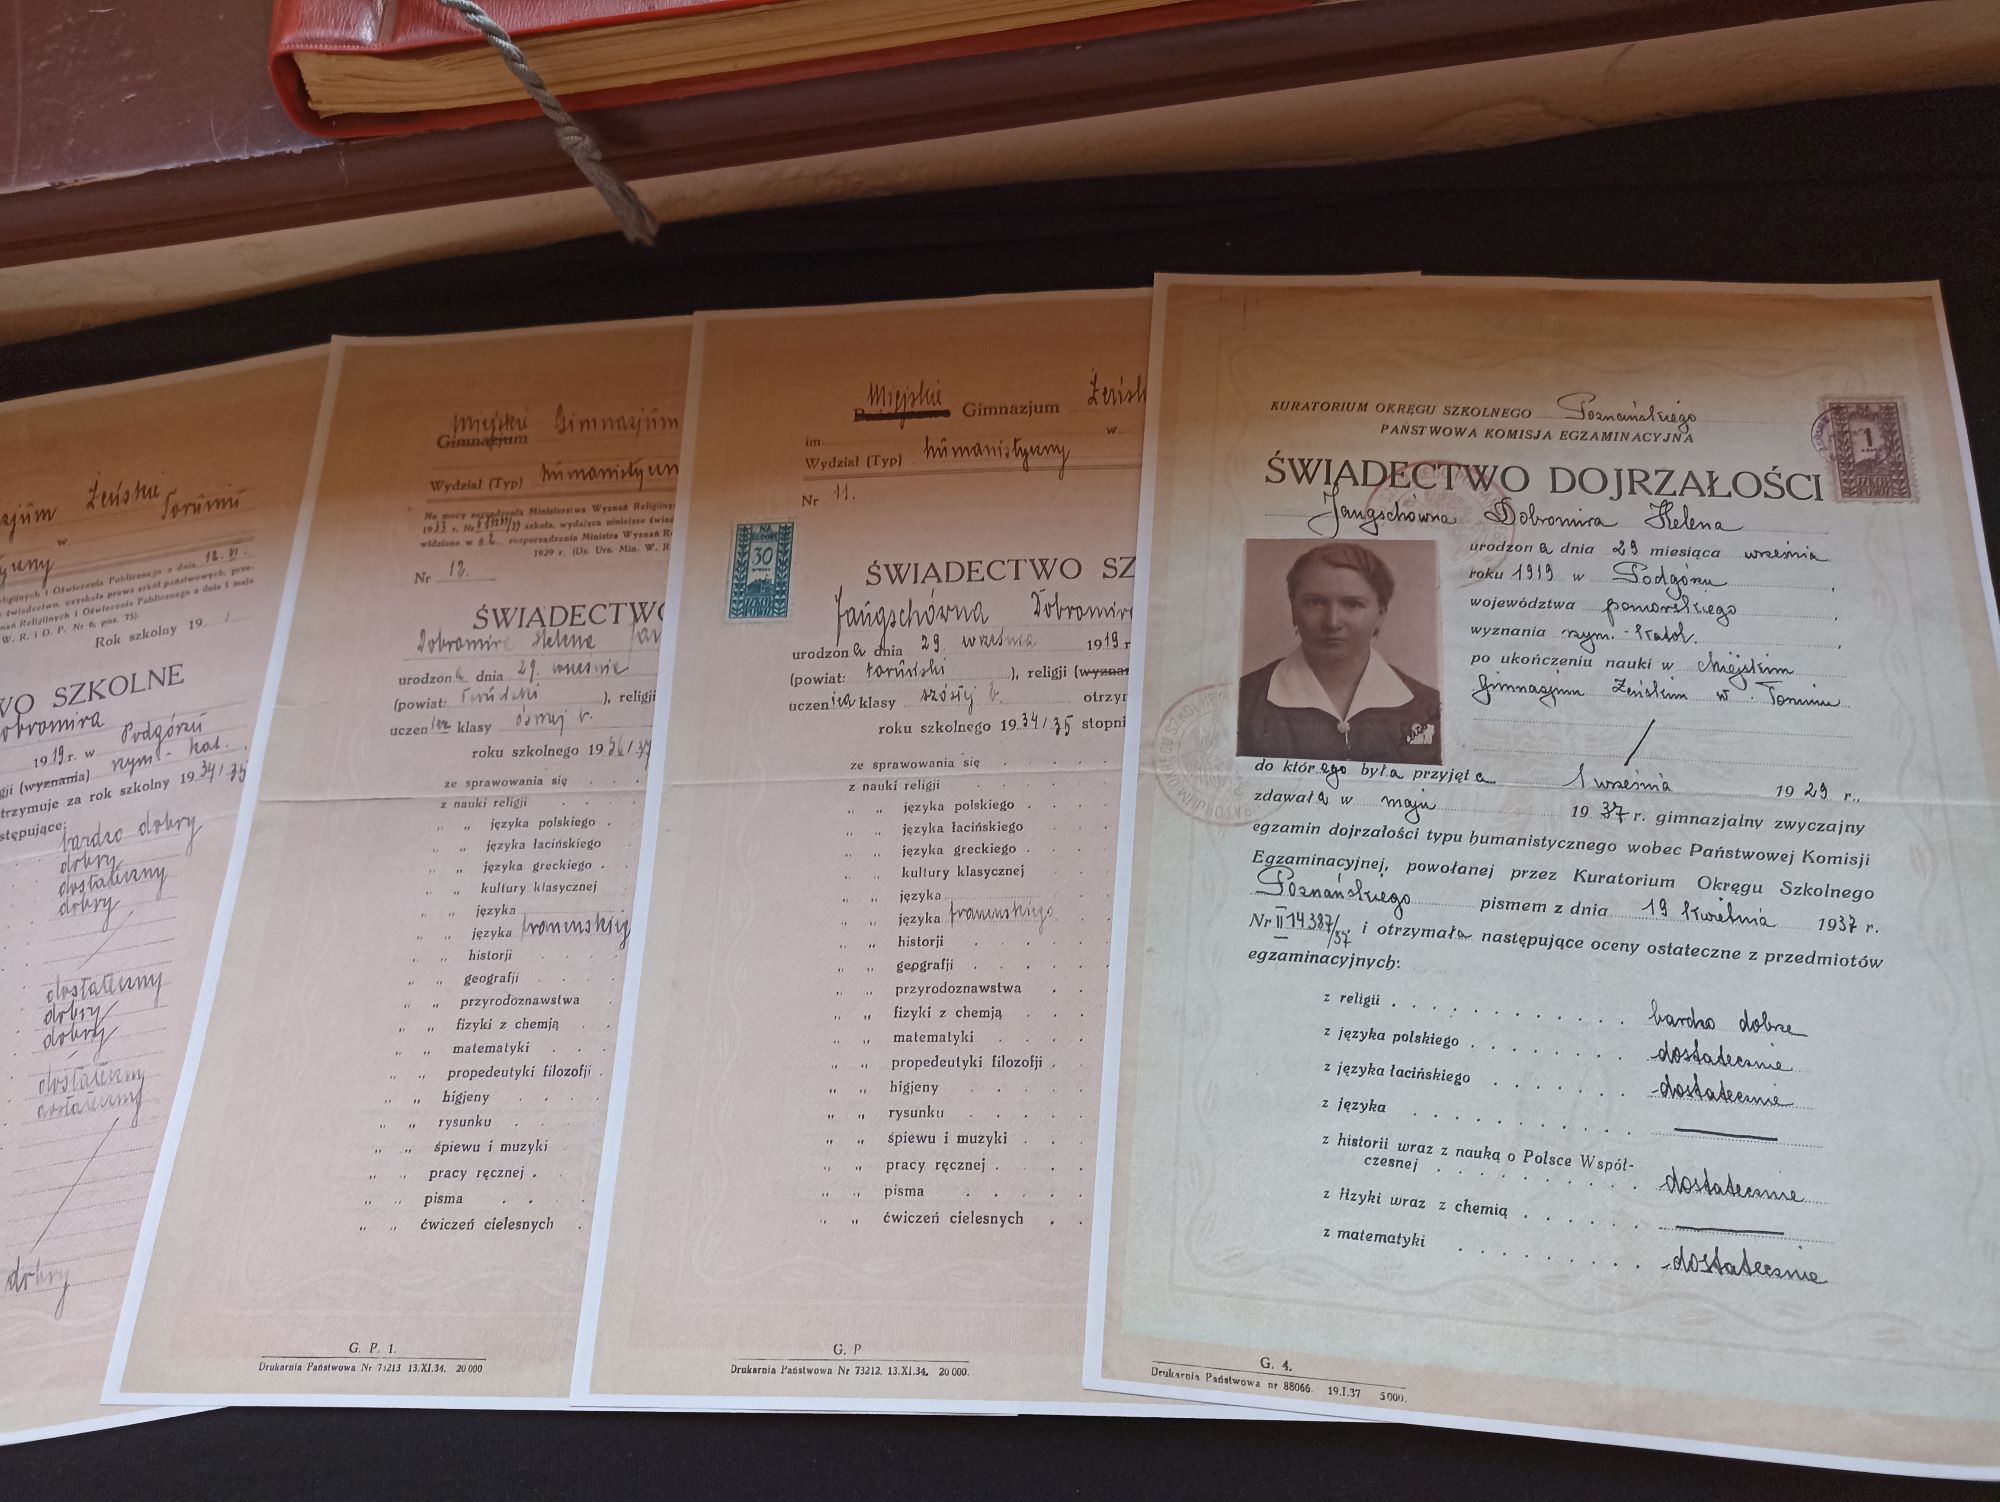 zjum Żeńskie
w Toruniu
yczny
ligijnych i Oświecenia Publicznego z dnia 12.VI.
świadectwo, uzyskała prawa szkół państwowych, prze-
nań Religijnych i Oświecenia Publicznego z dnia 1 maja
W. R. i O. P. Nr 6, poz. 75).
Rok szkolny 19 /
WO SZKOLNE
Dobromira
19 19 r. w Podgórzu
gii (wyznania) rzym-kat.
trzymuje za rok szkolny 19 34/35
stępujące:
bardzo dobry
dobry
dostateczny
dobry
dostateczny
dobry
dobry
dostateczny
dostateczny
dobry
Miejskie Gimnazjum
Gimnazjum
Wydział (Typ) humanistyczn
Na mocy zarządzenia Ministerstwa Wyznań Religijny
1933 r. Nr szkoła, wydająca niniejsze świad
widziane w § 2 rozporządzenia Ministra Wyznań R
1929 r. (Dz. Urz. Min. W. R
Nr 12.
ŚWIADECTWO
Dobromira Helena Jau
urodzona dnia 29 września
(powiat: toruński ), religji
uczenica klasy ósmej b.
roku szkolnego 19 36/37
ze sprawowania się . . .
z nauki religji . . .
" " języka polskiego .
" " języka łacińskiego
" " języka greckiego .
" " kultury klasycznej
" " języka
" " języka francuskieg
" " historji
" " geografji . .
" " przyrodoznawstwa
" " fizyki z chemją .
" " matematyki . . .
" " propedeutyki filozofji .
" " higjeny . . . .
" " rysunku . . . .
" " śpiewu i muzyki
" " pracy ręcznej .
" " pisma . . . .
" " ćwiczeń cielesnych .
G. P. 1.
Drukarnia Państwowa Nr 73213. 13.XI.34. 20 000
Miejskie
Państwowe Gimnazjum Żeńsk
im. w
Wydział (Typ) humanistyczny
Nr 11.
NA
BUDOWĘ
30
GROSZY
SZKÓŁ
POWSZ.
ŚWIADECTWO SZ
Jaugschówna Dobromira
urodzona dnia 29 września 19 19 r
(powiat: toruński ), religji (wyznan
uczenica klasy szóstej b. otrzym
roku szkolnego 19 34/35 stopni
ze sprawowania się . . . .
z nauki religji . . . .
" " języka polskiego . . .
" " języka łacińskiego . .
" " języka greckiego . . .
" " kultury klasycznej . .
" " języka
" " języka francuskiego
" " historji . . . .
" " geografji . . . .
" " przyrodoznawstwa . .
" " fizyki z chemją . . .
" " matematyki . . . .
" " propedeutyki filozofji . .
" " higjeny . . . .
" " rysunku . . . .
" " śpiewu i muzyki . . .
" " pracy ręcznej . . .
" " pisma . . . .
" " ćwiczeń cielesnych . .
G. P
Drukarnia Państwowa Nr 73212. 13.XI.34. 20 000.
KURATORIUM OKRĘGU SZKOLNEGO Poznańskiego
PAŃSTWOWA KOMISJA EGZAMINACYJNA
1
ŚWIADECTWO DOJRZAŁOŚCI
Jaugschówna Dobromira Helena
urodzona dnia 29 miesiąca września
roku 1919 w Podgórzu ,
województwa pomorskiego ,
wyznania rzym.-katol. ,
po ukończeniu nauki w Miejskim
Gimnazjum Żeńskim w Toruniu
do którego była przyjęta 1 września 19 29 r.,
zdawała w maju 19 37 r. gimnazjalny zwyczajny
egzamin dojrzałości typu humanistycznego wobec Państwowej Komisji
Egzaminacyjnej, powołanej przez Kuratorium Okręgu Szkolnego
Poznańskiego pismem z dnia 19 kwietnia 1937 r.
Nr II 14387/37, i otrzymała następujące oceny ostateczne z przedmiotów
egzaminacyjnych:
z religii . . . . . . . . . . bardzo dobrze
z języka polskiego . . . . . . . dostatecznie
z języka łacińskiego . . . . . . dostatecznie
z języka . . . . . . . . . —
z historii wraz z nauką o Polsce Współ-
czesnej . . . . . . . . . dostatecznie
z fizyki wraz z chemią . . . . . —
z matematyki . . . . . . . . dostatecznie
G. 4.
Drukarnia Państwowa nr 88066. 19.I.37 5000.